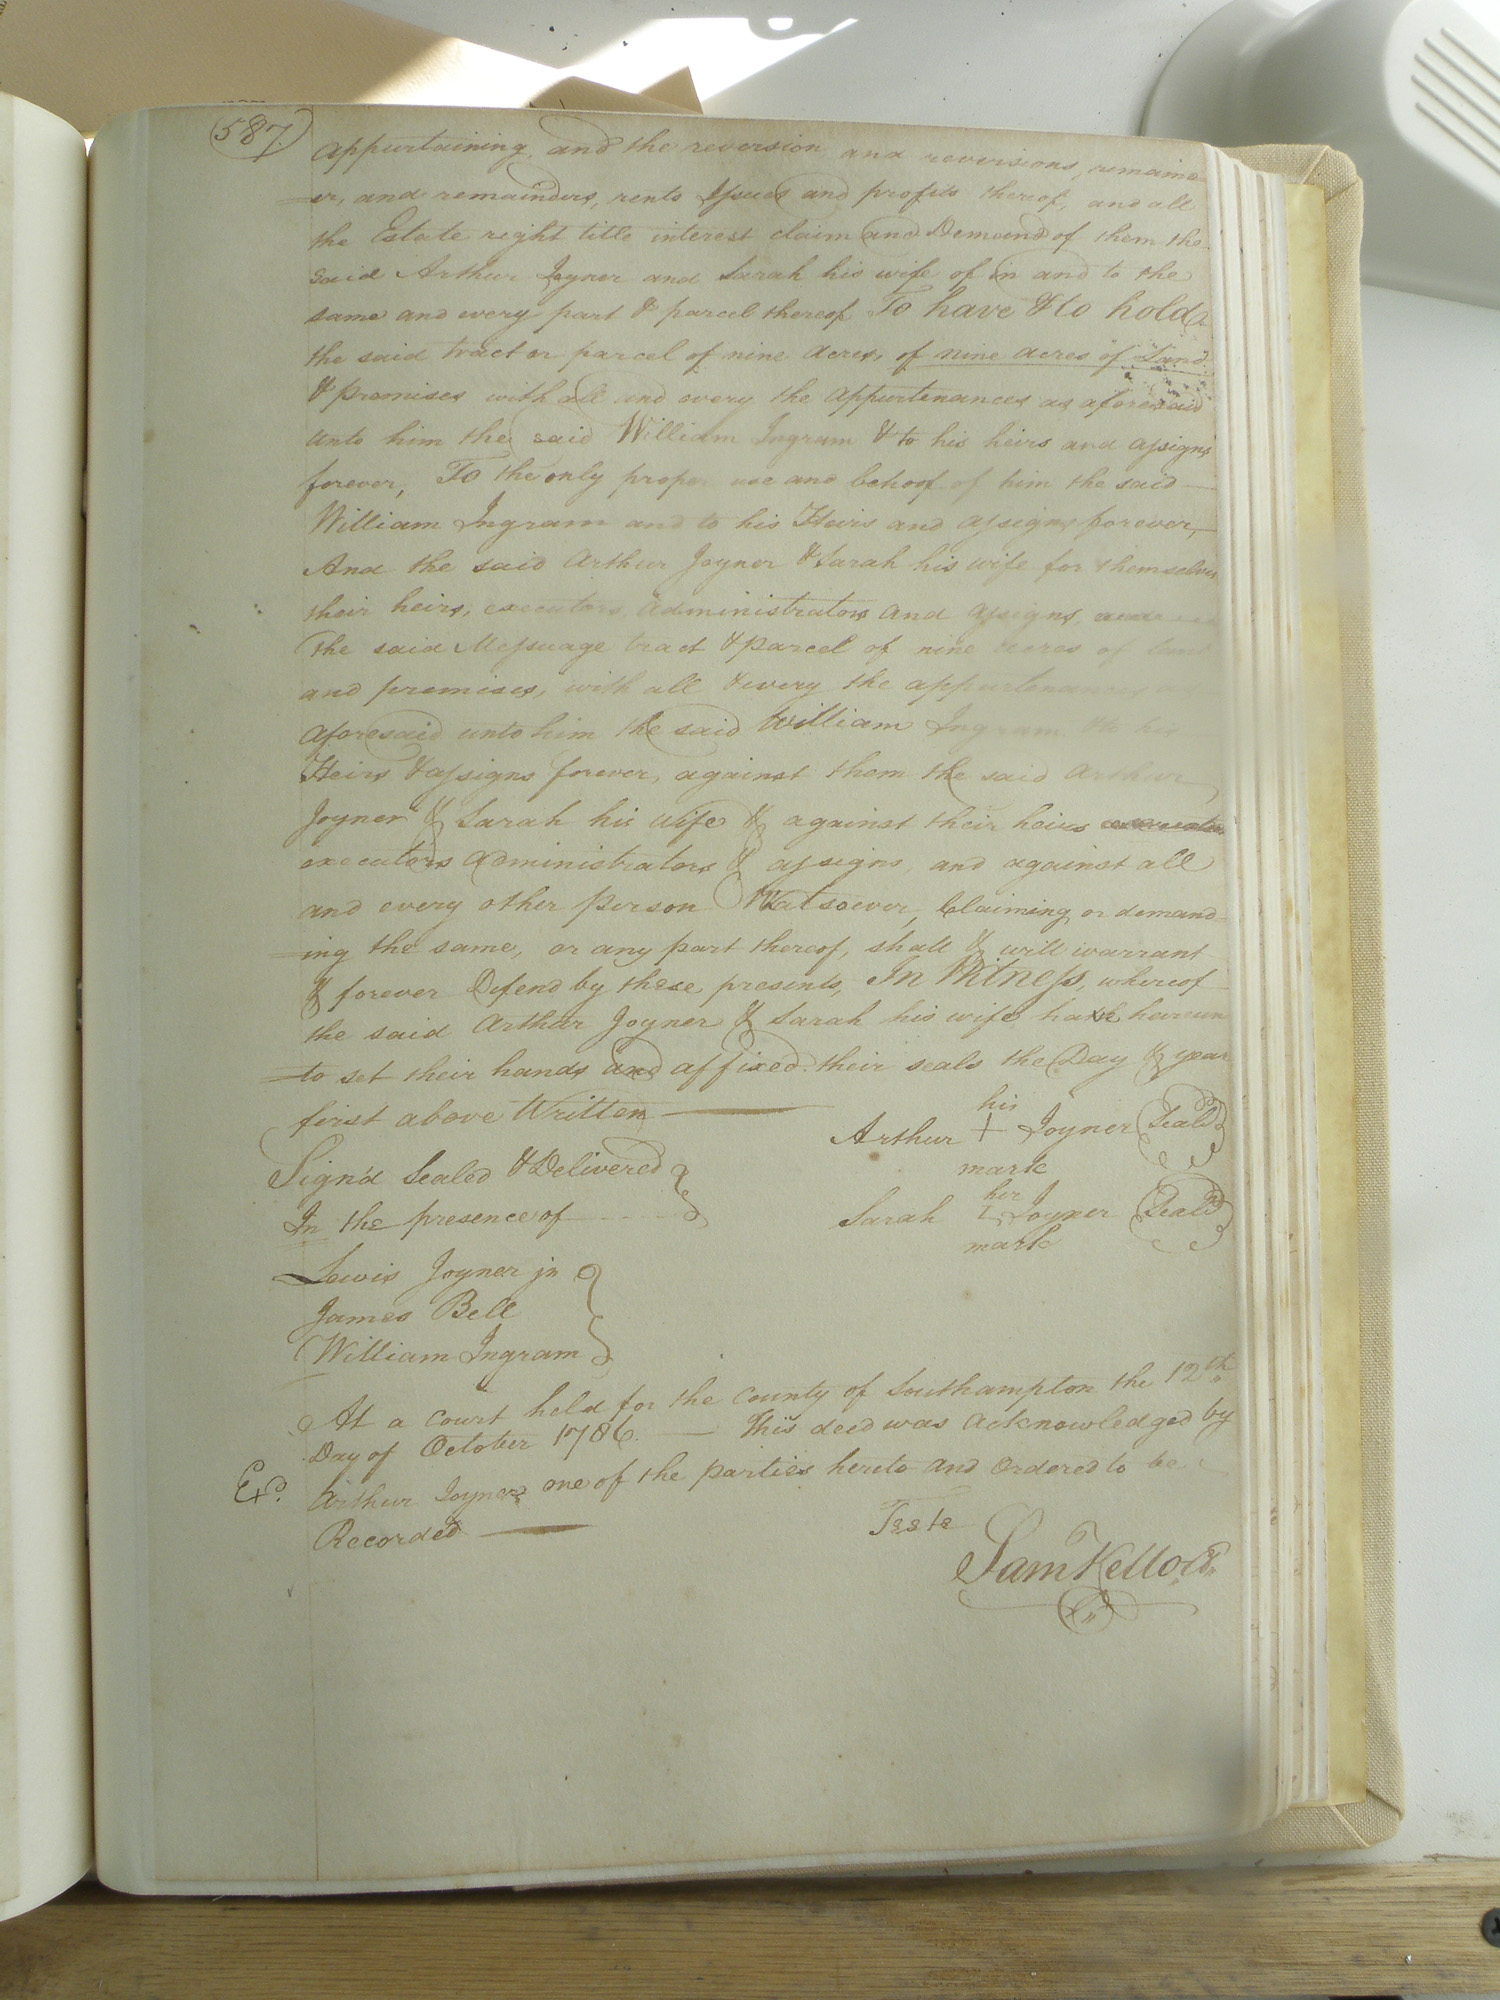 587
appurtaining, and the reversion and reversions, remaind=
=er, and remainders, rents Issues and profits thereof, and all
the Estate reight title interest claim and Demand of them the
said Arthur Joyner and Sarah his wife of in and to the
same and every part & parcel thereof To have & to hold
the said tract or parcel of nine acres, of nine acres of Land
& premises with all and every the appurtenances as aforesaid
unto him the said William Ingram & to his heirs and assigns
forever, To the only proper use and behoof of him the said
William Ingram and to his Heirs and assigns forever,
And the said Arthur Joyner & Sarah his wife for themselves
their heirs, executors administrators and assigns,
the said Messuage tract & parcel of nine acres of land
and premises, with all & every the appurtenances
aforesaid unto him the said William Ingram & to his
Heirs & assigns forever, against them the said Arthur
Joyner & Sarah his wife & against their heirs
executors administrators & assigns, and against all
and every other person Watsoever, Claiming or demand=
=ing the same, or any part thereof, shall & will warrant
& forever Defend by these presents, In Witness, whereof
the said Arthur Joyner & Sarah his wife have hereun
=to set their hands and affixed their seals the Day & year
first above Written
his
Arthur + Joyner Seal
mark
Sign'd Sealed & Delivered
her
In the presence of
Sarah I Joyner Seal
mark
Lewis Joyner jn
James Bell
William Ingram
At a Court held for the County of Southampton the 12th
Day of October 1786. This deed was acknowledged by
Exd. Arthur Joyner one of the parties hereto and Ordered to be
Recorded
Teste
Sam Kello Cl